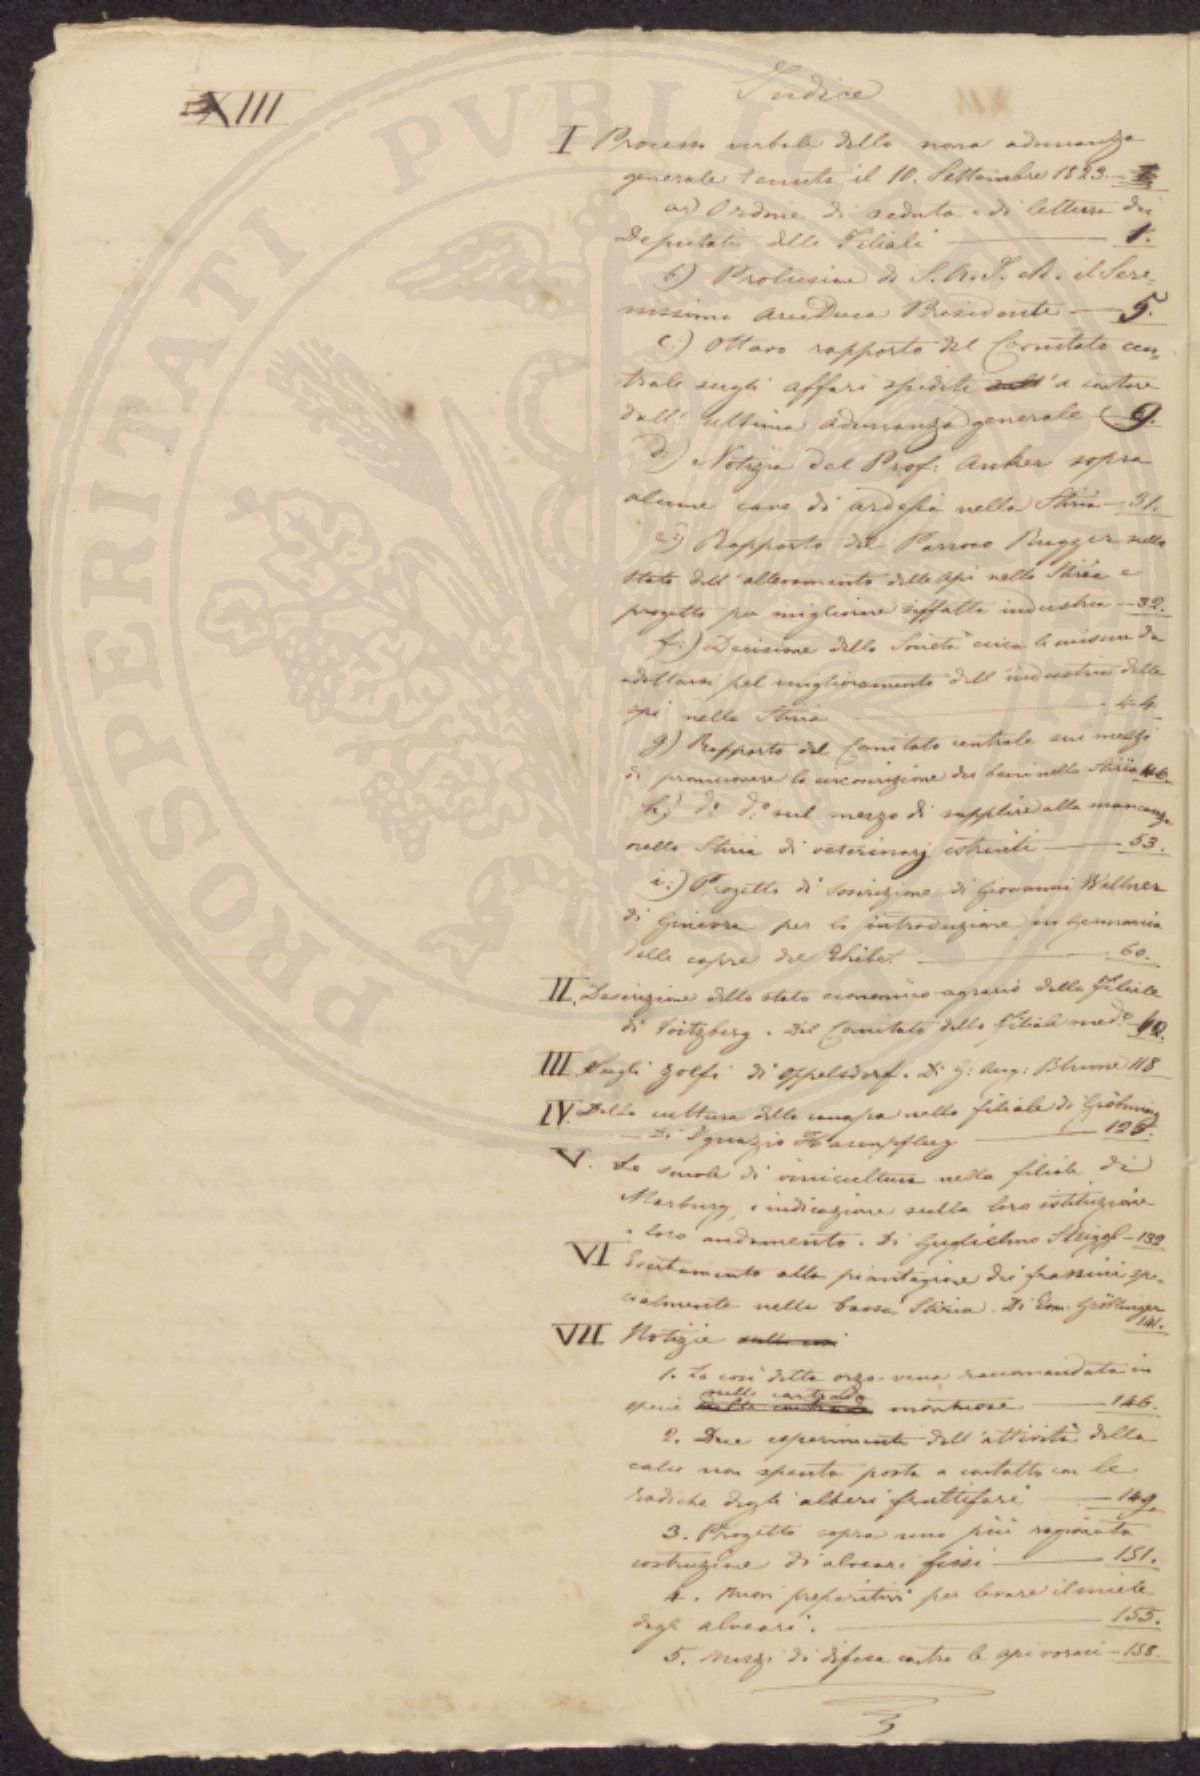 Indice
XIII
I Processo verbale della nona adunanza
generale tenuta il 10. Settembre 1823.
a) Ordine di seduta e di lettura dei
Deputati delle Filiali 1.
b) Prolusione di S. A. I. il Sere-
nissimo Arciduca Presidente 5.
c.) Ottavo rapporto del Comitato cen-
trale sugli affari spediti a contare
dall'ultima adunanza generale 9.
d.) Notizia del Prof: Anker sopra
alcune cave di ardesia nella Stiria 31.
e.) Rapporto del Parroco Rugger sullo
stato dell'allevamento delle api nella Stiria e
progetto per migliorare siffatta industria 32.
f.) Decisione della Società circa le misure da
adottarsi pel miglioramento dell'industria delle
api nella Stiria 44.
g) Rapporto del Comitato centrale sui mezzi
di promuovere la circoscrizione dei beni nella Stiria 46.
h.) d.o d.o sul mezzo di supplire alla mancanza
nella Stiria di veterinarj istruiti 53.
i.) Progetto di soscrizione di Giovanni Wallner
di Ginevra per la introduzione in Germania
delle capre del Thibet. 60.
II. Descrizione dello stato economico-agrario della Filiale
di Voitzberg. Del Comitato della Filiale med.a
III. Sugli zolfi di Oppelsdorf. Di G: Aug: Blume 118
IV. Della cultura della canapa nella filiale di Gröbming
Di Ignazio Hasenpflug 125.
V. Le scuole di vinicultura nella filiale di
Marburg, e indicazione sulla loro istituzione
e loro andamento. Di Guglielmo 139
VI Eccitamento alla piantagione dei frassini spe-
cialmente nella bassa Stiria. Di Eom. Gröblinger
141.
VII Notizie
1. La così detta orzo-vena raccomandata in
nelle contrade
specie delle contrade montuose 146.
2. Due esperimenti dell'attività della
calce non spenta posta a contatto con le
radiche degli alberi fruttiferi 149.
3. Progetto sopra una più ragionata
costruzione di alveari fissi 151.
4. Buoni preparativi per levare il miele
dagli alveari. 155.
5. Mezzi di difesa contro le api voraci 158.
PVBLIC
PROSPERITATI